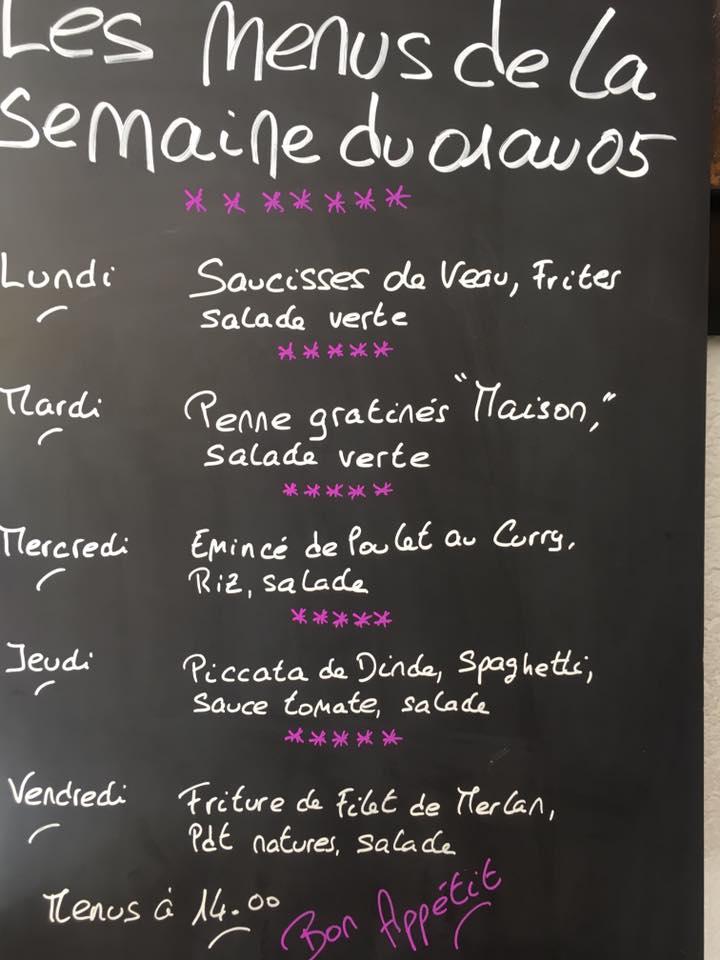 Les Menus de la
semaine du 01 au 05
*******
Lundi
Saucisses de Veau, Frites
salade verte
*****
Mardi
Penne gratinés "Maison,"
salade verte
*****
Mercredi
Emincé de Poulet au Curry,
Riz, salade
*****
Jeudi
Piccata de Dinde, Spaghetti,
sauce tomate, salade
*****
Vendredi
Friture de Filet de Merlan,
Pdt natures, salade
Menus à 14.00
Bon Appétit